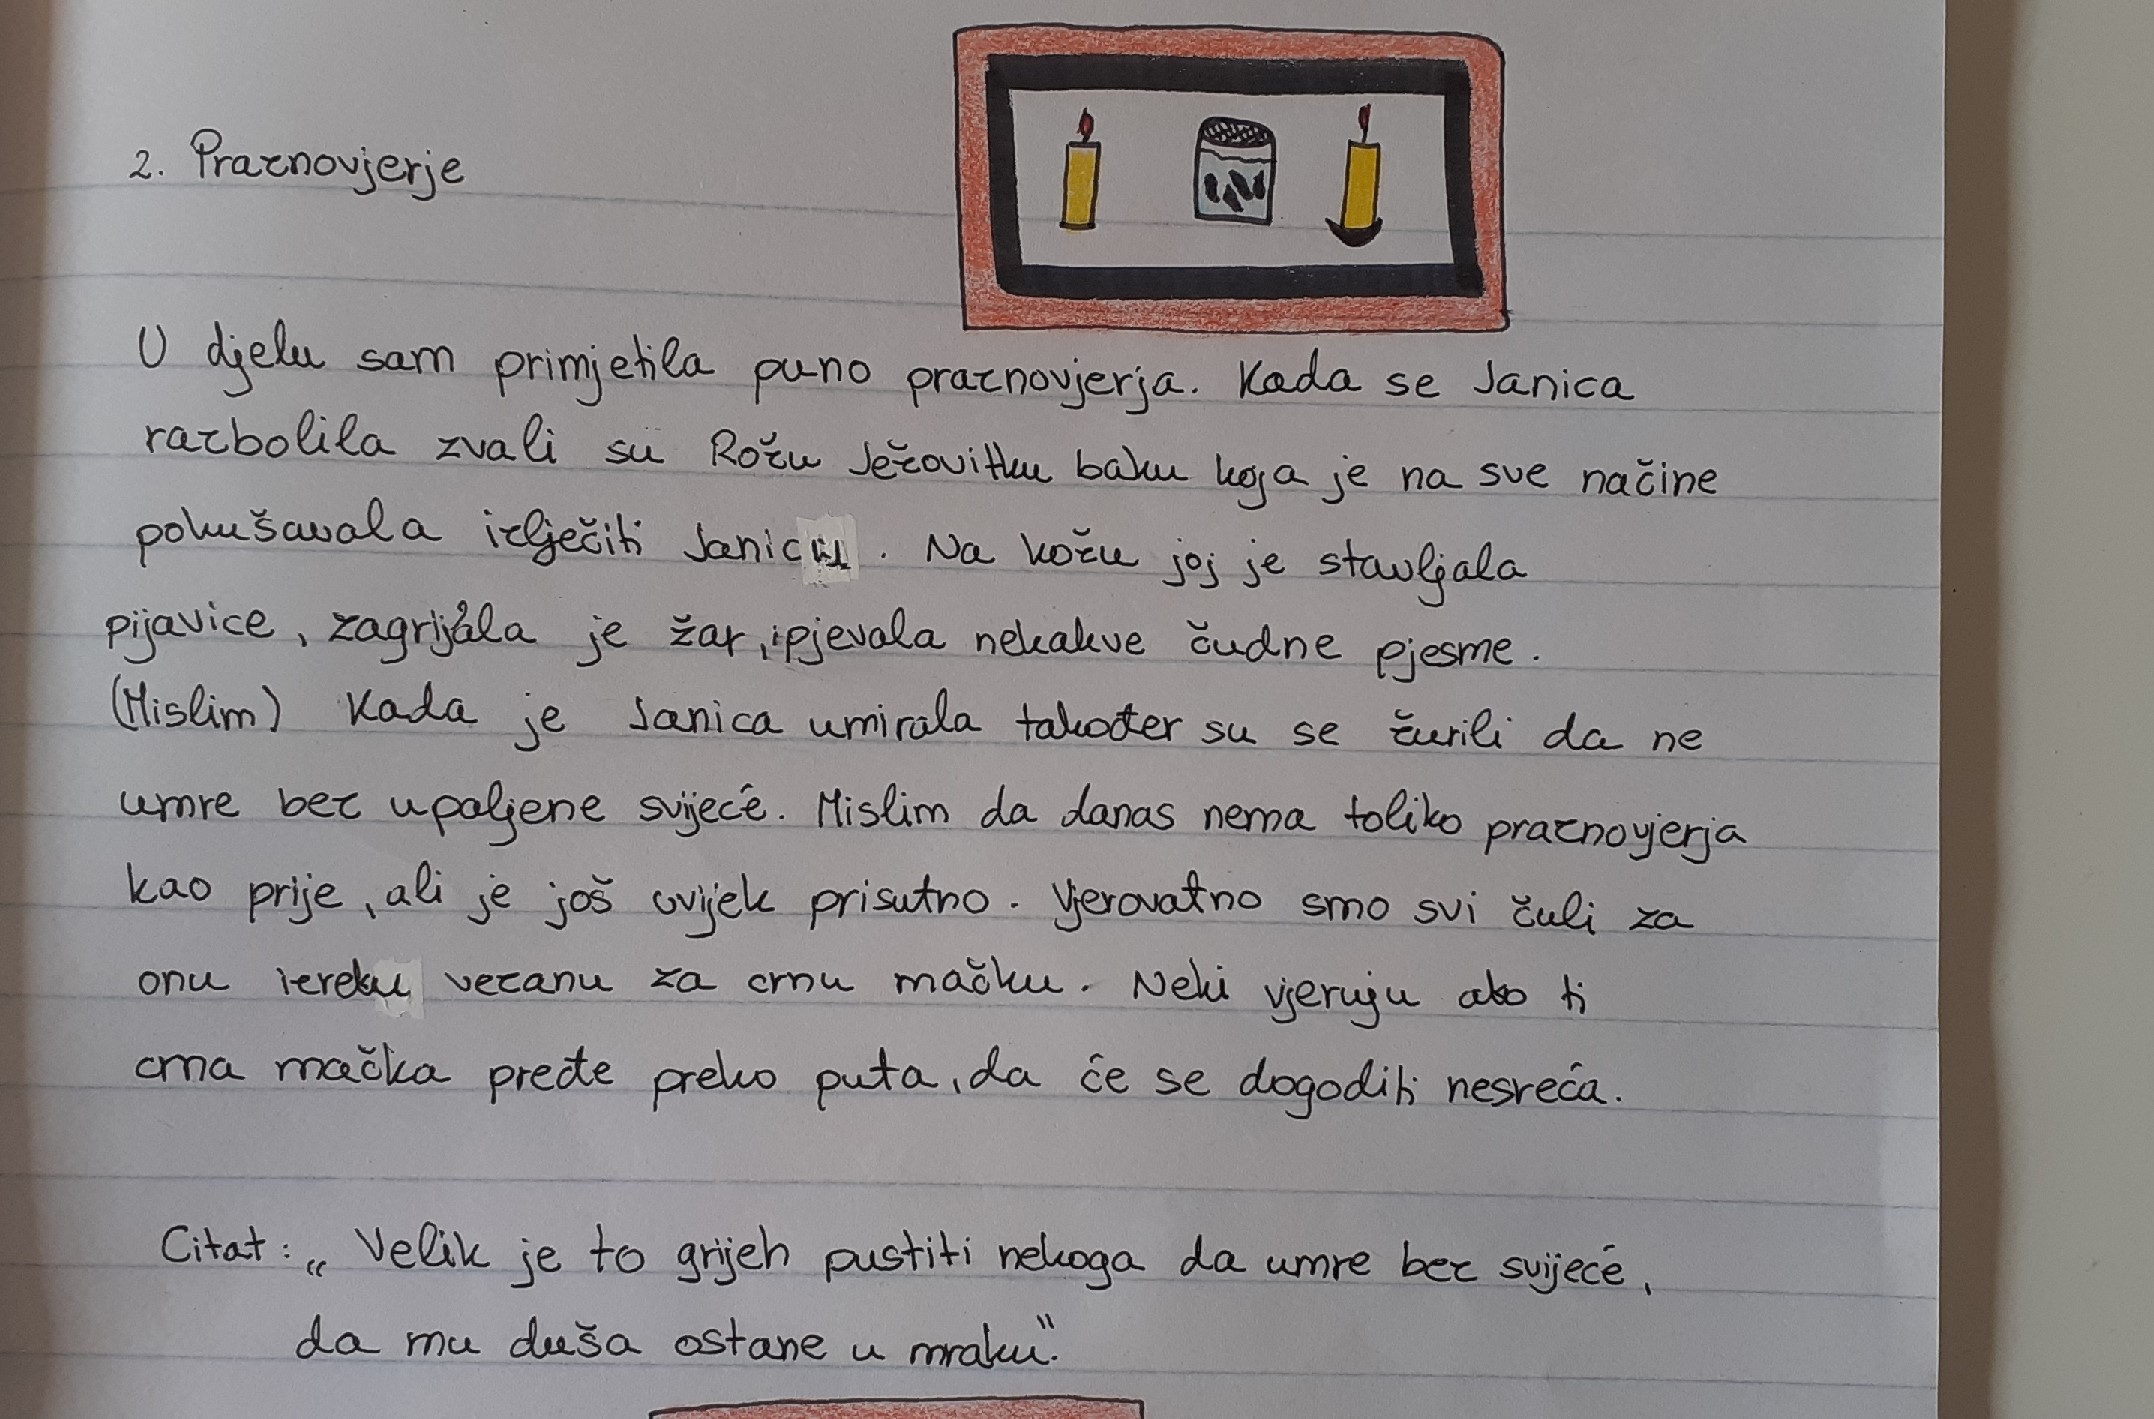 2. Praznovjerje
U djelu sam primjetila puno praznovjerja. Kada se Janica
razbolila zvali su Rožu Ježovitku baku koja je na sve načine
pokušavala izlječiti Janicu. Na kožu joj je stavljala
pijavice, zagrijala je žar, i pjevala nekakve čudne pjesme.
(Mislim) Kada je Janica umirala također su se žurili da ne
umre bez upaljene svijeće. Mislim da danas nema toliko praznovjerja
kao prije, ali je još uvijek prisutno. Vjerovatno smo svi čuli za
onu izreku vezanu za crnu mačku. Neki vjeruju ako ti
crna mačka pređe preko puta, da će se dogoditi nesreća.
Citat: „Velik je to grijeh pustiti nekoga da umre bez svijeće,
da mu duša ostane u mraku".